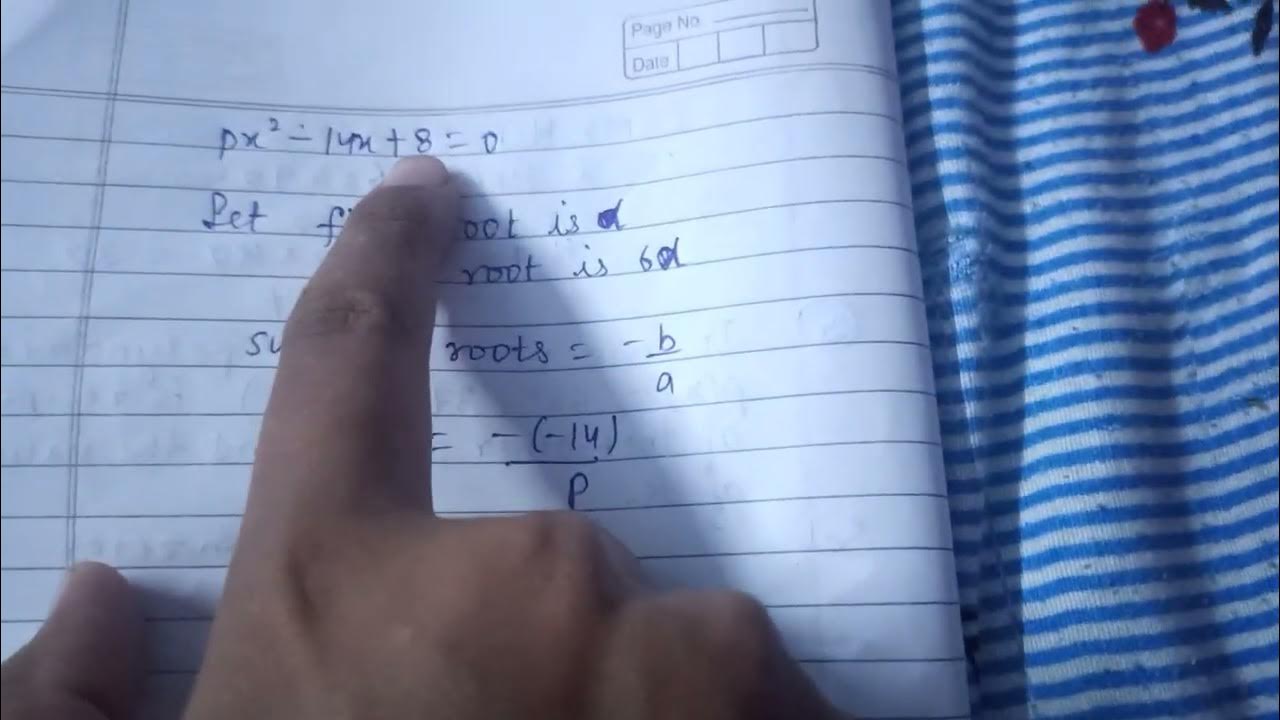 Page No.
Date
px² - 14x + 8 = 0
Let root is α
root is 6α
roots = - b/a
= -(-14)/p